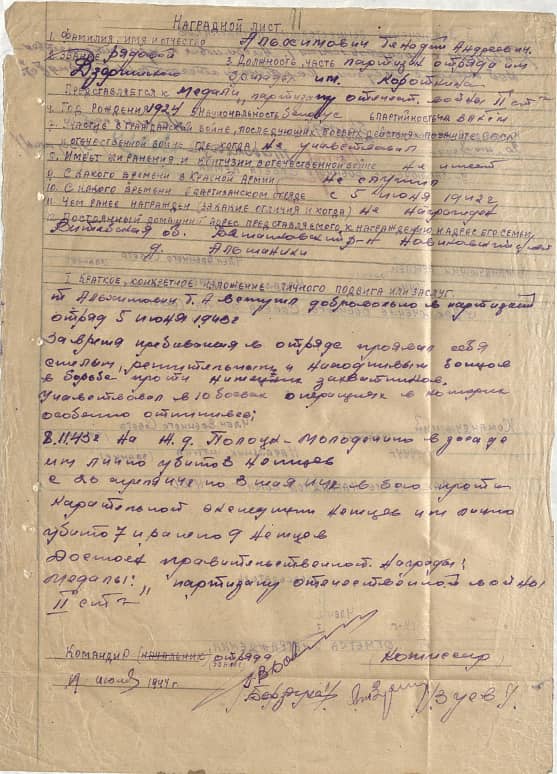 11
НАГРАДНОЙ ЛИСТ
1. ФАМИЛИЯ, ИМЯ И ОТЧЕСТВО Альхимович Генадий Андреевич.
2. ЗВАНИЕ рядовой 3. ДОЛЖНОСТЬ, ЧАСТЬ партизан отряда им
бригады им. Короткина
ПРЕДСТАВЛЯЕТСЯ К Медали „партизану отечест. войны II ст"
4. ГОД РОЖДЕНИЯ 1924 5 НАЦИОНАЛЬНОСТЬ Белорус 6 ПАРТИЙНОСТЬ
7. УЧАСТИЕ В ГРАЖДАНСКОЙ ВОЙНЕ, ПОСЛЕДУЮЩИХ БОЕВЫХ ДЕЙСТВИЯХ ПО ЗАЩИТЕ СССР
И ОТЕЧЕСТВЕННОЙ ВОЙНЕ (ГДЕ КОГДА) Не участвовал
8. ИМЕЕТ ЛИ РАНЕНИЯ И КОНТУЗИИ В ОТЕЧЕСТВЕННОЙ ВОЙНЕ Не имеет
9. С КАКОГО ВРЕМЕНИ В КРАСНОЙ АРМИИ Не служил
10. С КАКОГО ВРЕМЕНИ В ПАРТИЗАНСКОМ ОТРЯДЕ с 5 июня 1942 г
11. ЧЕМ РАНЕЕ НАГРАЖДЕН (ЗА КАКИЕ ОТЛИЧИЯ И КОГДА) Не награжден
12. ПОСТОЯННЫЙ ДОМАШНИЙ АДРЕС ПРЕДСТАВЛЯЕМОГО К НАГРАЖДЕНИЮ И АДРЕС ЕГО СЕМЬИ
Витебская об. р-н
д.
I. КРАТКОЕ, КОНКРЕТНОЕ ИЗЛОЖЕНИЕ ЛИЧНОГО ПОДВИГА ИЛИ ЗАСЛУГ
т Альхимович Г. А вступил добровольно в партизанский
отряд 5 июня 1943г
За время пребывания в отряде проявил себя
смелым, решительным и находчивым бойцом
в борьбе проти немецких захватчиков,
участвовал в 10 боевых операциях в которых
особенно отличился;
8.11.43г на ж.д. Полоцк-Молодечно в засаде
им лично убито 3 немцев
с 26 апреля по 8 мая в бою против
карательной экспедиции немцев им лично
убито 7 и ранено 9 немцев
Достоен правительственной награды!
медали! „партизану отечественной войны
II ст"
КОМАНДИР (НАЧАЛЬНИК) отряда
Комиссар
июня 1944г.
Зуев